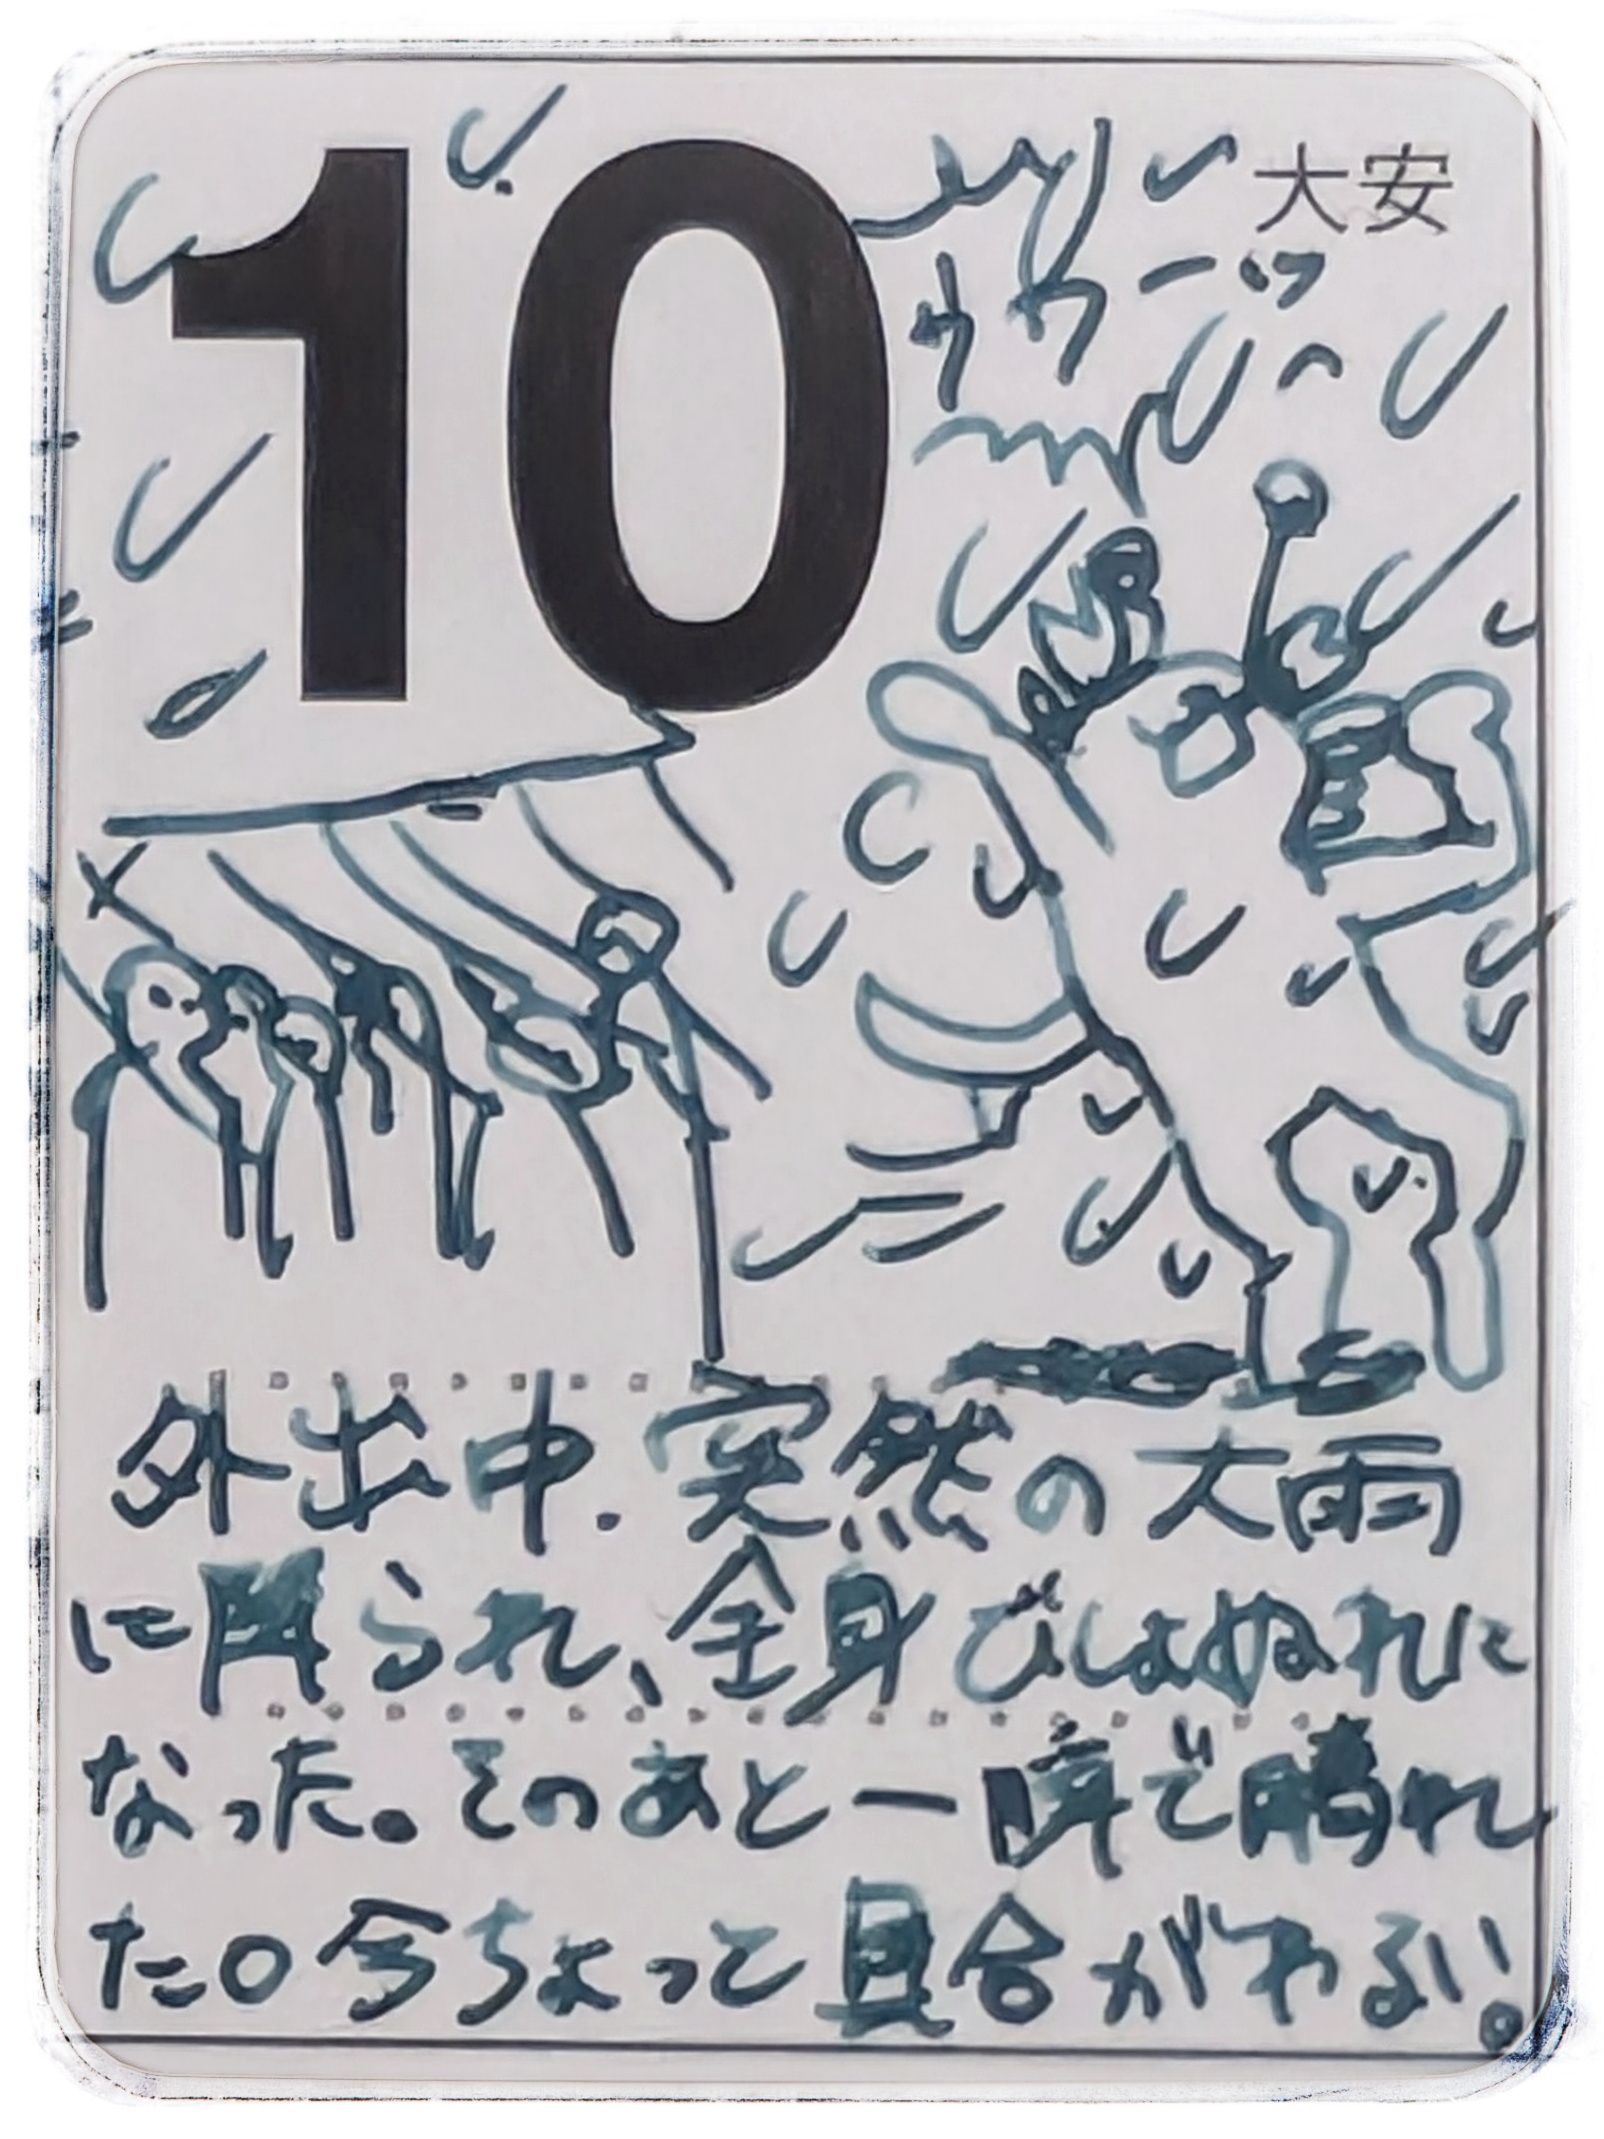 10
大安
外出中.突然の大雨
に降られ、全身びしょぬれに
なった。そのあと一瞬で晴れ
た。今ちょっと具合がわるい。